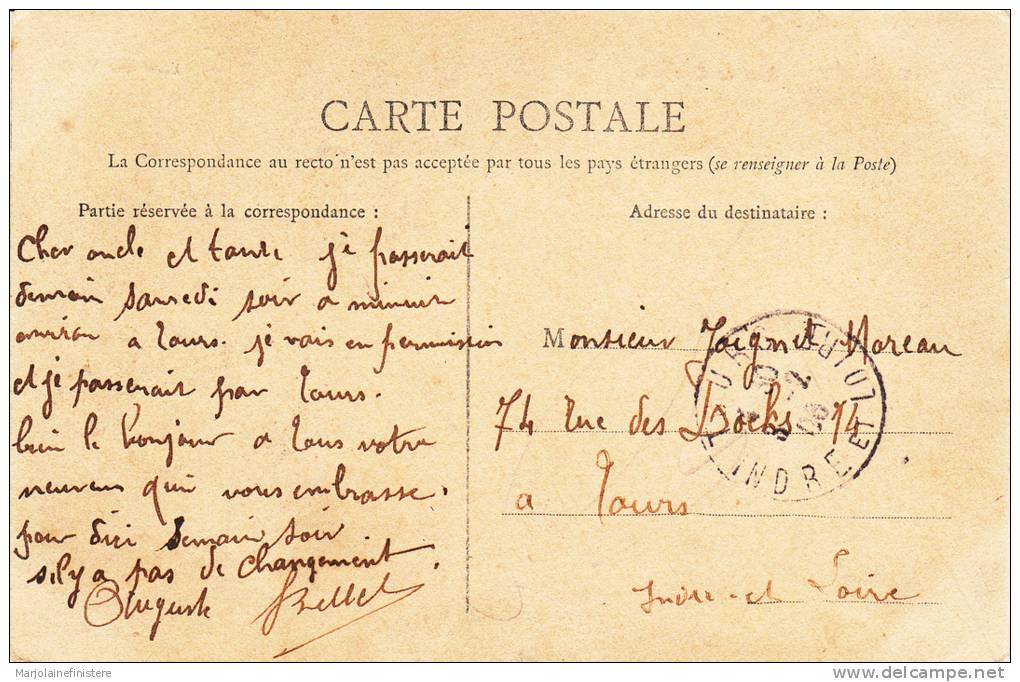 CARTE POSTALE
La Correspondance au recto n'est pas acceptée par tous les pays étrangers (se renseigner à la Poste)
Partie réservée à la correspondance :
Cher oncle et tante je passerait
demain samedi soir a minuit
environ a Tours. je vais en permission
et je passerait par Tours.
bien le bonjour a tous votre
neuveux qui vous embrasse.
pour dici demain soir
s'il y a pas de changement.
Auguste Bellet
Adresse du destinataire :
Monsieur Joignet Moreau
74 rue des Docks 74
a Tours
Indre-et Loire
TOURS
INDRE ET LOIRE
Marjolainefinistere
delcampe.net